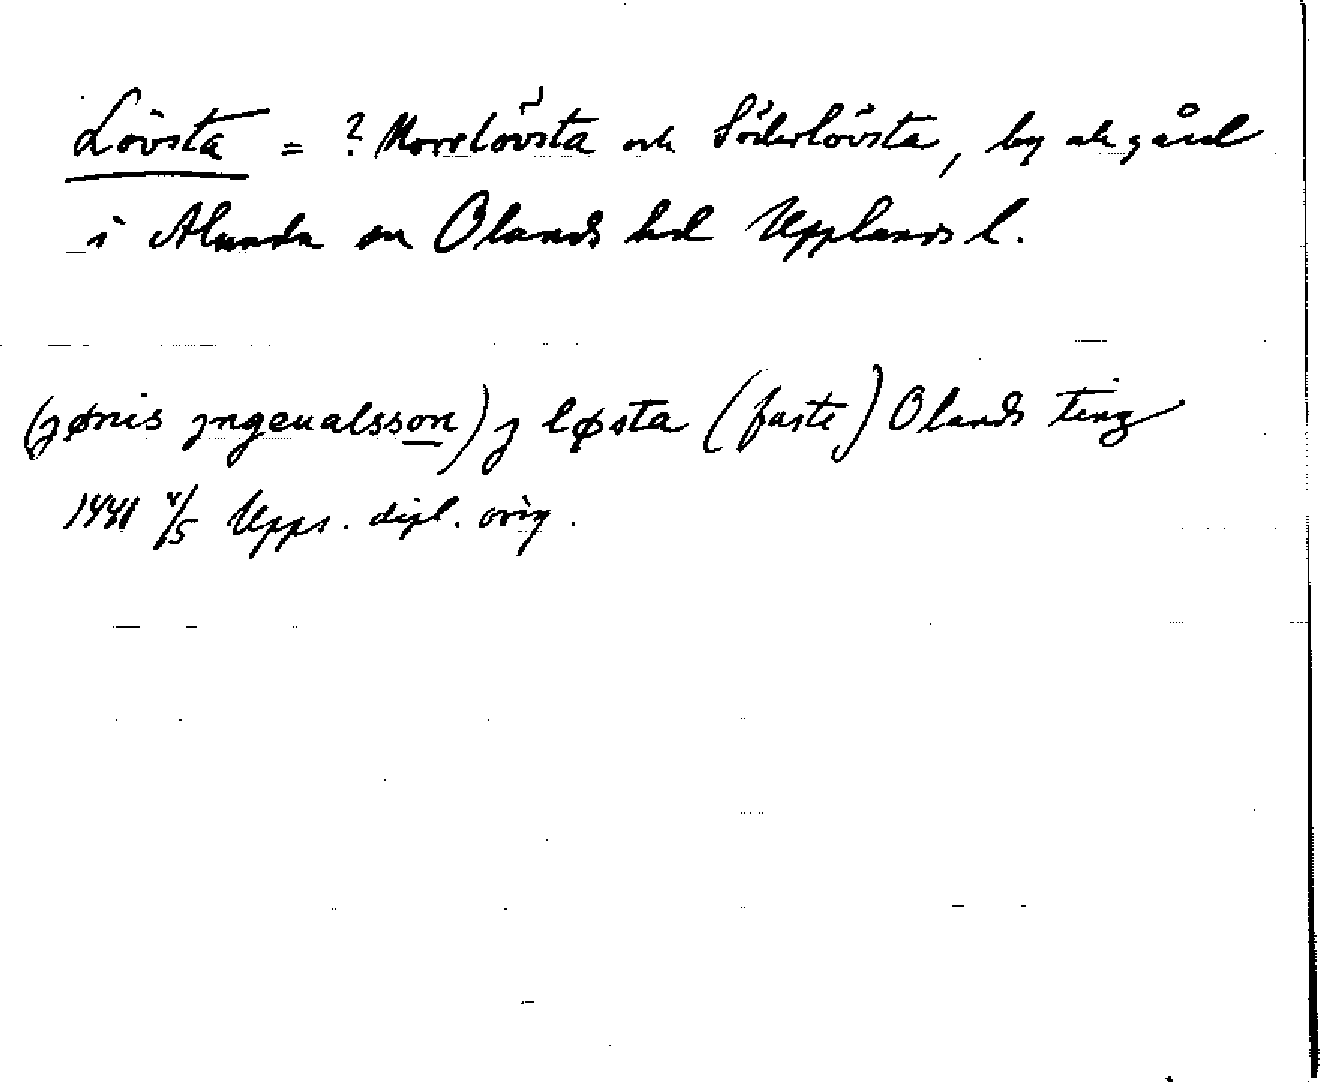 Lövsta = ? Norrlövsta och Söderlövsta, by och gård
i Alunda sn Olands hd Upplands l.
(jønis jngeualsson) j løsta (faste) Olands ting
1441 4/5 Upps. dipl. orig.